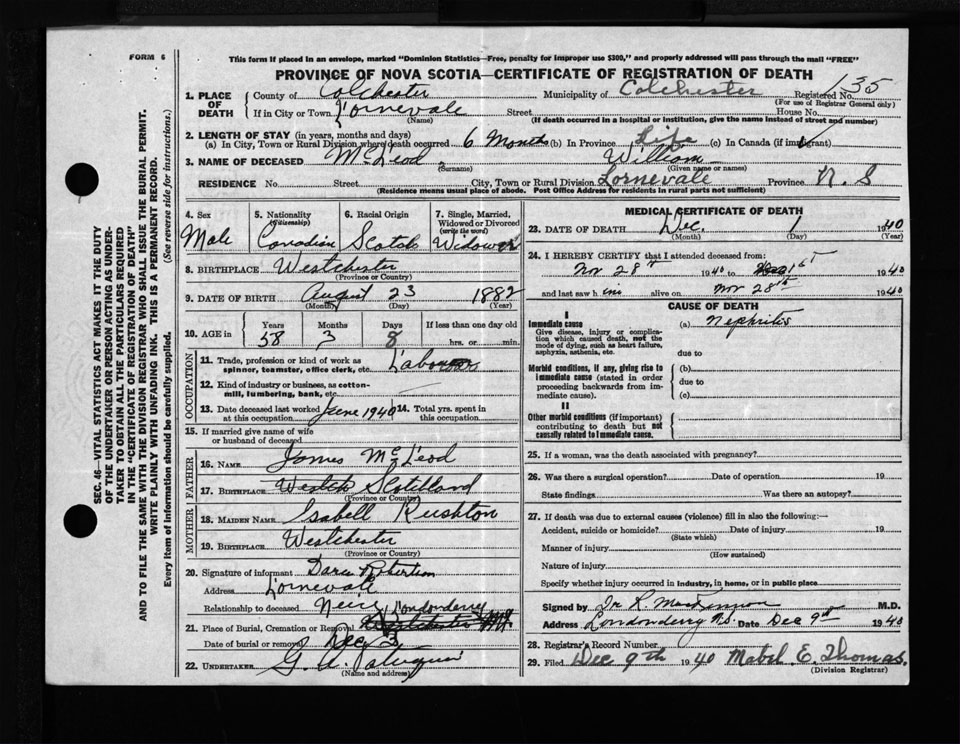 FORM 6
This form if placed in an envelope, marked "Dominion Statistics—Free, penalty for improper use $300," and properly addressed will pass through the mail "FREE"
PROVINCE OF NOVA SCOTIA—CERTIFICATE OF REGISTRATION OF DEATH
1. PLACE OF DEATH County of Colchester Municipality of Colchester Registered No. 135
(For use of Registrar General only)
If in City or Town Lornevale Street House No.
(Name) (If death occurred in a hospital or institution, give the name instead of street and number)
2. LENGTH OF STAY (in years, months and days)
(a) In City, Town or Rural Division where death occurred 6 Months (b) In Province Life (c) In Canada (if immigrant)
3. NAME OF DECEASED McLeod William
(Surname) (Given name or names)
RESIDENCE No. Street City, Town or Rural Division Lornevale Province N. S
(Residence means usual place of abode. Post Office Address for residents in rural parts not sufficient)
4. Sex Male
5. Nationality (Citizenship) Canadian
6. Racial Origin Scotch
7. Single, Married, Widowed or Divorced (write the word) Widower
8. BIRTHPLACE Westchester
(Province or Country)
9. DATE OF BIRTH August 23 1882
(Month) (Day) (Year)
10. AGE in Years Months Days If less than one day old
58 3 8 hrs. or min.
OCCUPATION
11. Trade, profession or kind of work as spinner, teamster, office clerk, etc. Labourer
12. Kind of industry or business, as cotton-mill, lumbering, bank, etc.
13. Date deceased last worked at this occupation June 1940 14. Total yrs. spent in this occupation
15. If married give name of wife or husband of deceased
FATHER
16. NAME James McLeod
17. BIRTHPLACE Scotland
(Province or Country)
MOTHER
18. MAIDEN NAME Isabell Rushton
19. BIRTHPLACE Westchester
(Province or Country)
20. Signature of informant Robertson
Address Lornevale
Relationship to deceased
21. Place of Burial, Cremation or Removal Londonderry
Date of burial or removal Dec 3
22. UNDERTAKER G. A.
(Name and address)
MEDICAL CERTIFICATE OF DEATH
23. DATE OF DEATH Dec. 1 1940
(Month) (Day) (Year)
24. I HEREBY CERTIFY that I attended deceased from:
Nov 28th 1940 to 1st 1940
and last saw him alive on Nov 28th 1940
CAUSE OF DEATH
I
Immediate cause (a) Nephritis
Give disease, injury or complication which caused death, not the mode of dying, such as heart failure, asphyxia, asthenia, etc.
due to
Morbid conditions, if any, giving rise to immediate cause (stated in order proceeding backwards from immediate cause).
(b)
due to
(c)
II
Other morbid conditions (if important) contributing to death but not causally related to immediate cause.
25. If a woman, was the death associated with pregnancy?
26. Was there a surgical operation? Date of operation 19
State findings Was there an autopsy?
27. If death was due to external causes (violence) fill in also the following:—
Accident, suicide or homicide? Date of injury 19
(State which)
Manner of injury
(How sustained)
Nature of injury
Specify whether injury occurred in industry, in home, or in public place
Signed by Dr R. MacKinnon M.D.
Address Londonderry N.S. Date Dec 9th 1940
28. Registrar's Record Number
29. Filed Dec 9th 1940 Mabel E. Thomas.
(Division Registrar)
SEC. 46—VITAL STATISTICS ACT MAKES IT THE DUTY
OF THE UNDERTAKER OR PERSON ACTING AS UNDER-
TAKER TO OBTAIN ALL THE PARTICULARS REQUIRED
IN THE "CERTIFICATE OF REGISTRATION OF DEATH"
AND TO FILE THE SAME WITH THE DIVISION REGISTRAR WHO SHALL ISSUE THE BURIAL PERMIT.
WRITE PLAINLY WITH UNFADING INK. THIS IS A PERMANENT RECORD.
Every item of information should be carefully supplied. (See reverse side for instructions.)